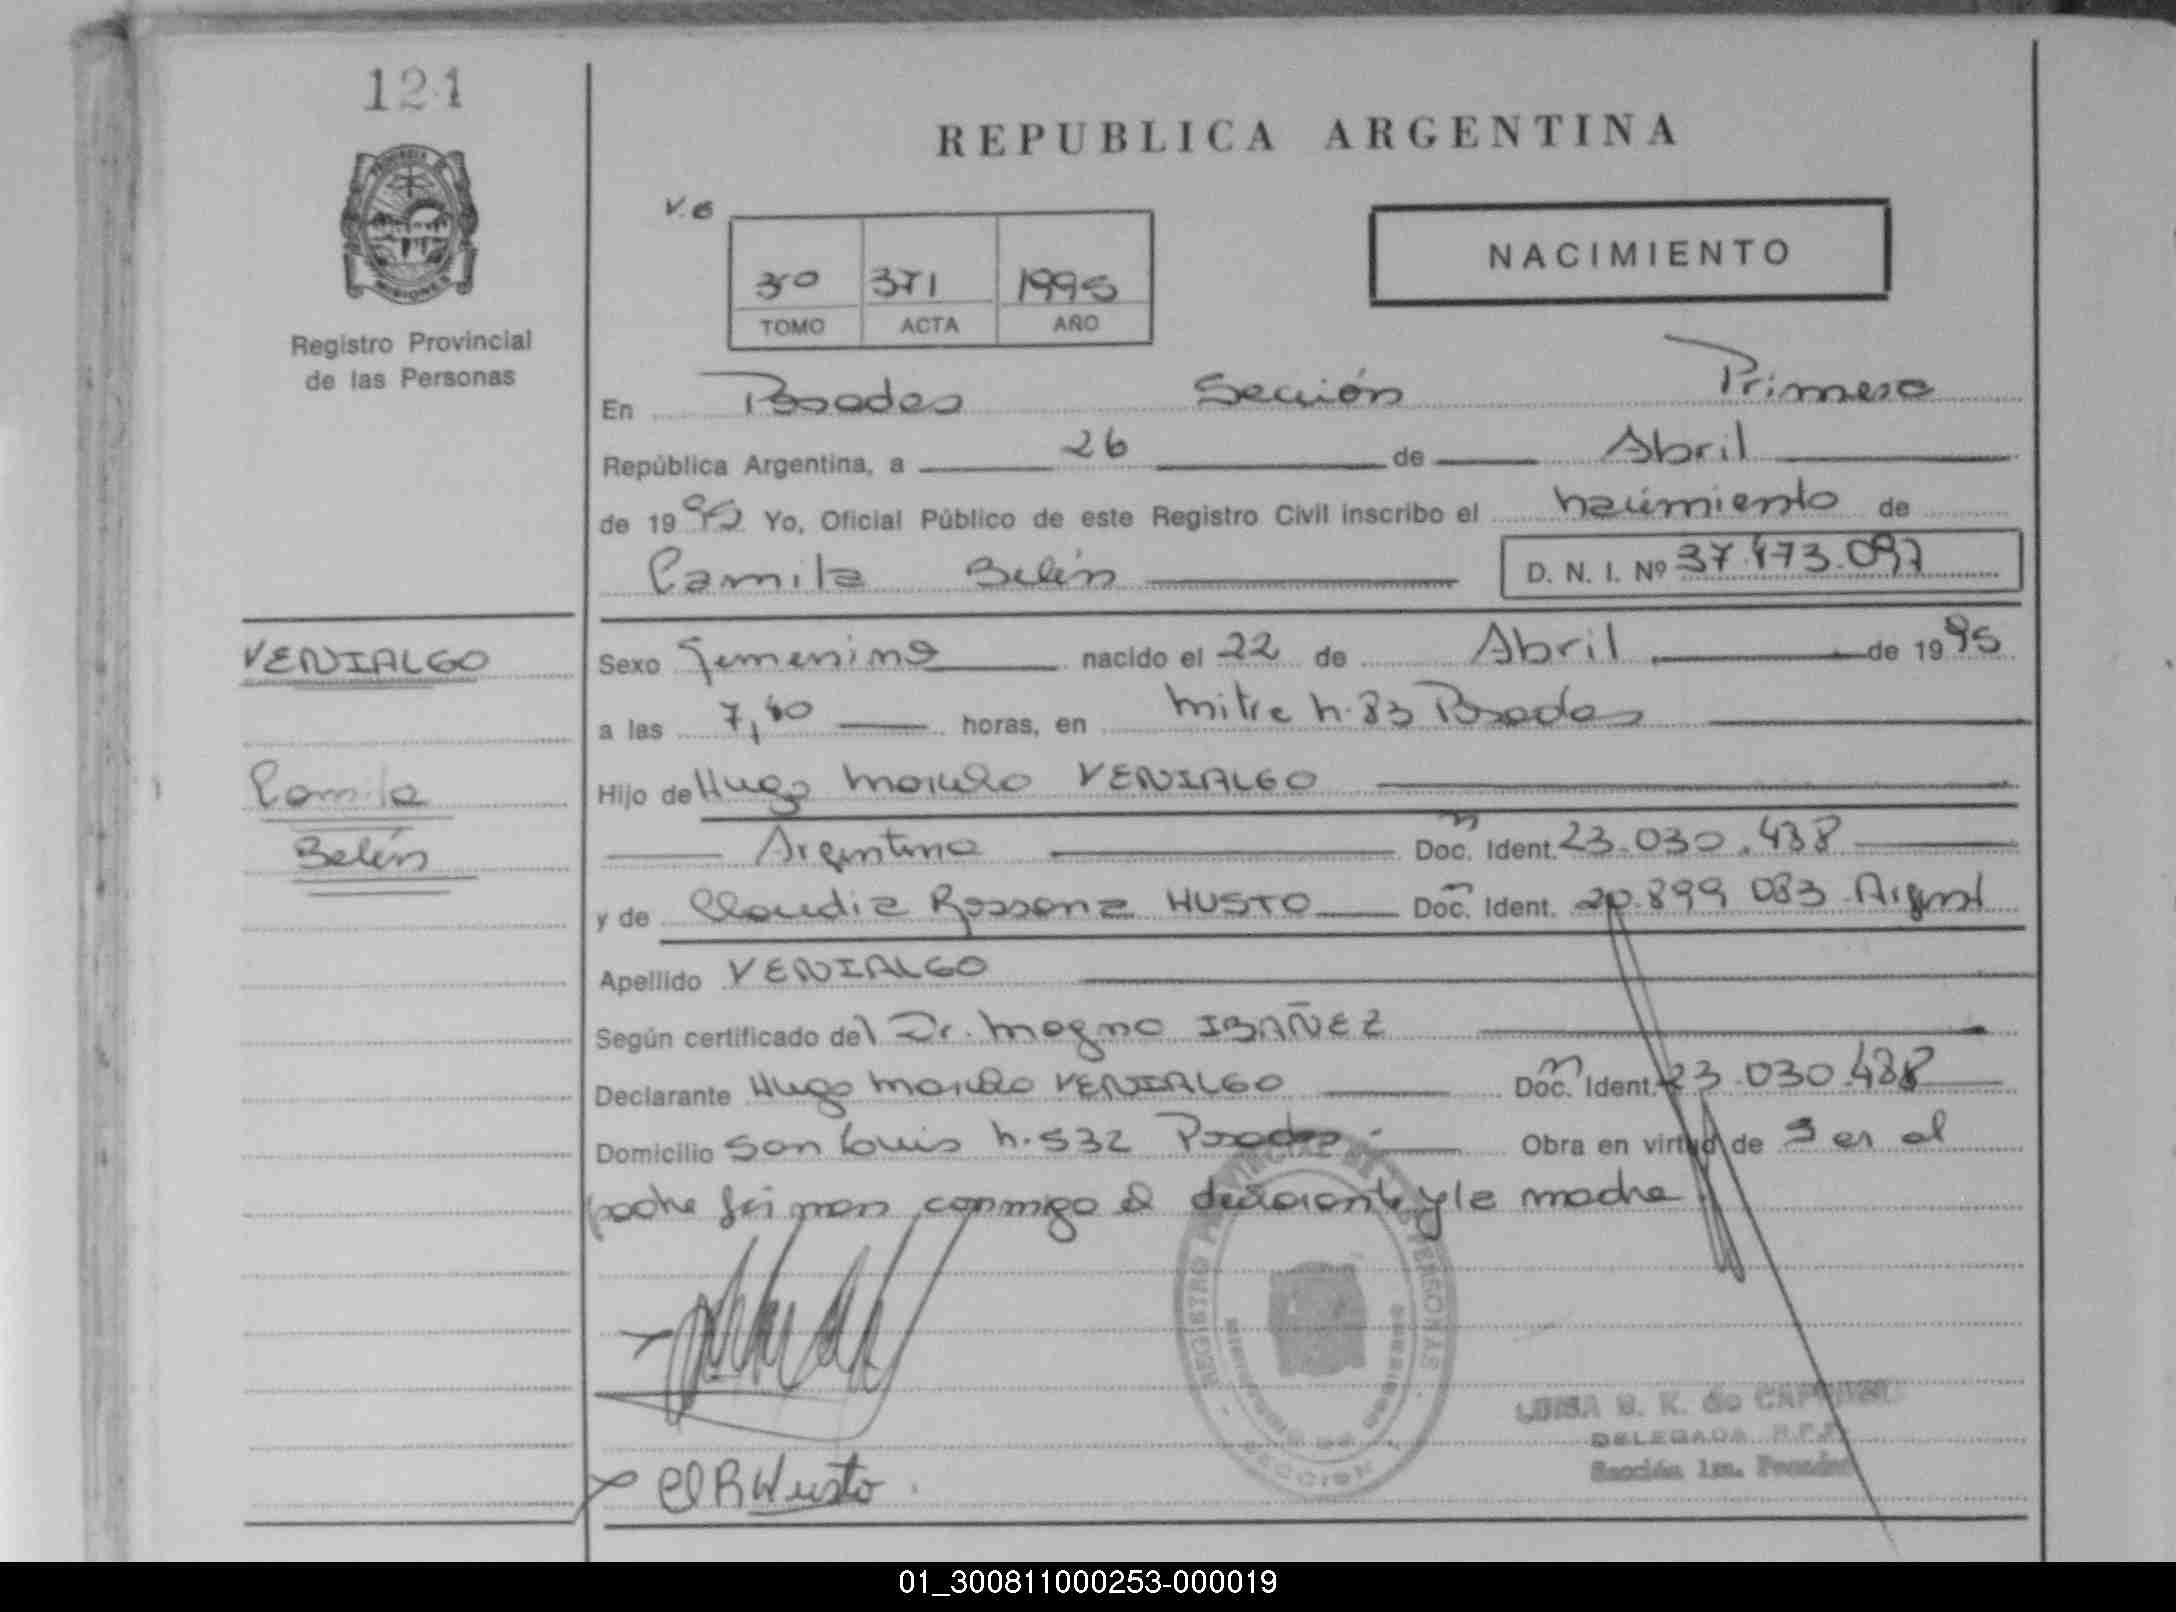 121
REPUBLICA ARGENTINA
V.6
NACIMIENTO
3º 371 1995
TOMO ACTA AÑO
PROVINCIA DE
MISIONES
Registro Provincial
de las Personas
En Posadas Sección Primera
República Argentina, a 26 de Abril
de 1995 Yo, Oficial Público de este Registro Civil inscribo el nacimiento de
Camila Belén D. N. I. Nº 37.473.097
VENIALGO
Camila
Belén
Sexo femenino nacido el 22 de Abril de 1995
a las 7,40 horas, en Mitre n.83 Posadas
Hijo de Hugo Marcelo VENIALGO
Argentino Doc. Ident. 23.030.438
y de Claudia Rossana HUSTO Doc. Ident. 20.899 083 Argent
Apellido VENIALGO
Según certificado del Dr. Magno IBAÑEZ
Declarante Hugo Marcelo VENIALGO Doc. Ident. 23.030.438
Domicilio San Luis n.532 Posadas Obra en virtud de Ser el
padre firman conmigo el declarante y la madre
REGISTRO PROVINCIAL DE LAS PERSONAS
SECCION
LUISA de
DELEGADA R.P.P.
Sección 1ra. Posadas
Cl R Husto
01_300811000253-000019